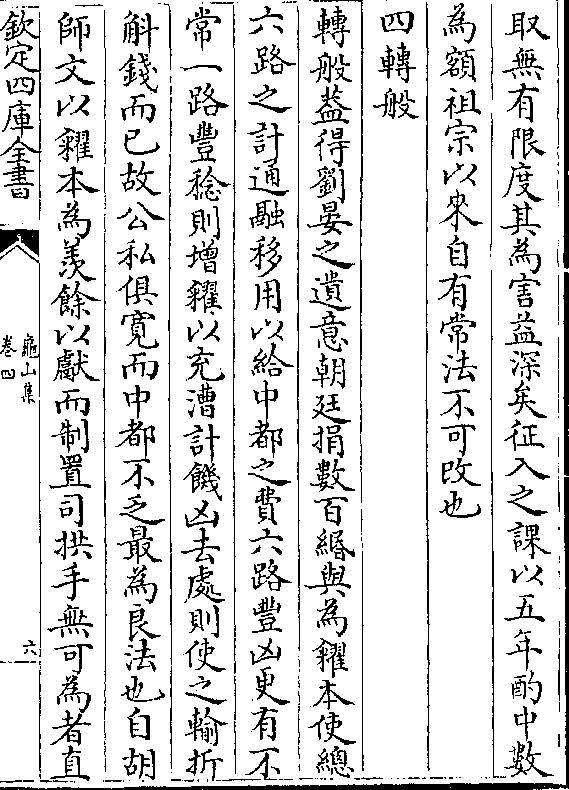 取無有限度其為害益深矣征入之課以五年酌中數
為額祖宗以來自有常法不可改也
四轉般
轉般葢得劉晏之遺意朝廷捐數百緡與為糴本使總
六路之計通融移用以給中都之費六路豐凶更有不
常一路豐稔則增糴以充漕計饑凶去處則使之輸折
斛錢而已故公私俱寛而中都不乏最為良法也自胡
師文以糴本為羡餘以獻而制置司拱手無可為者直
欽定四庫全書
龜山集
卷四
六